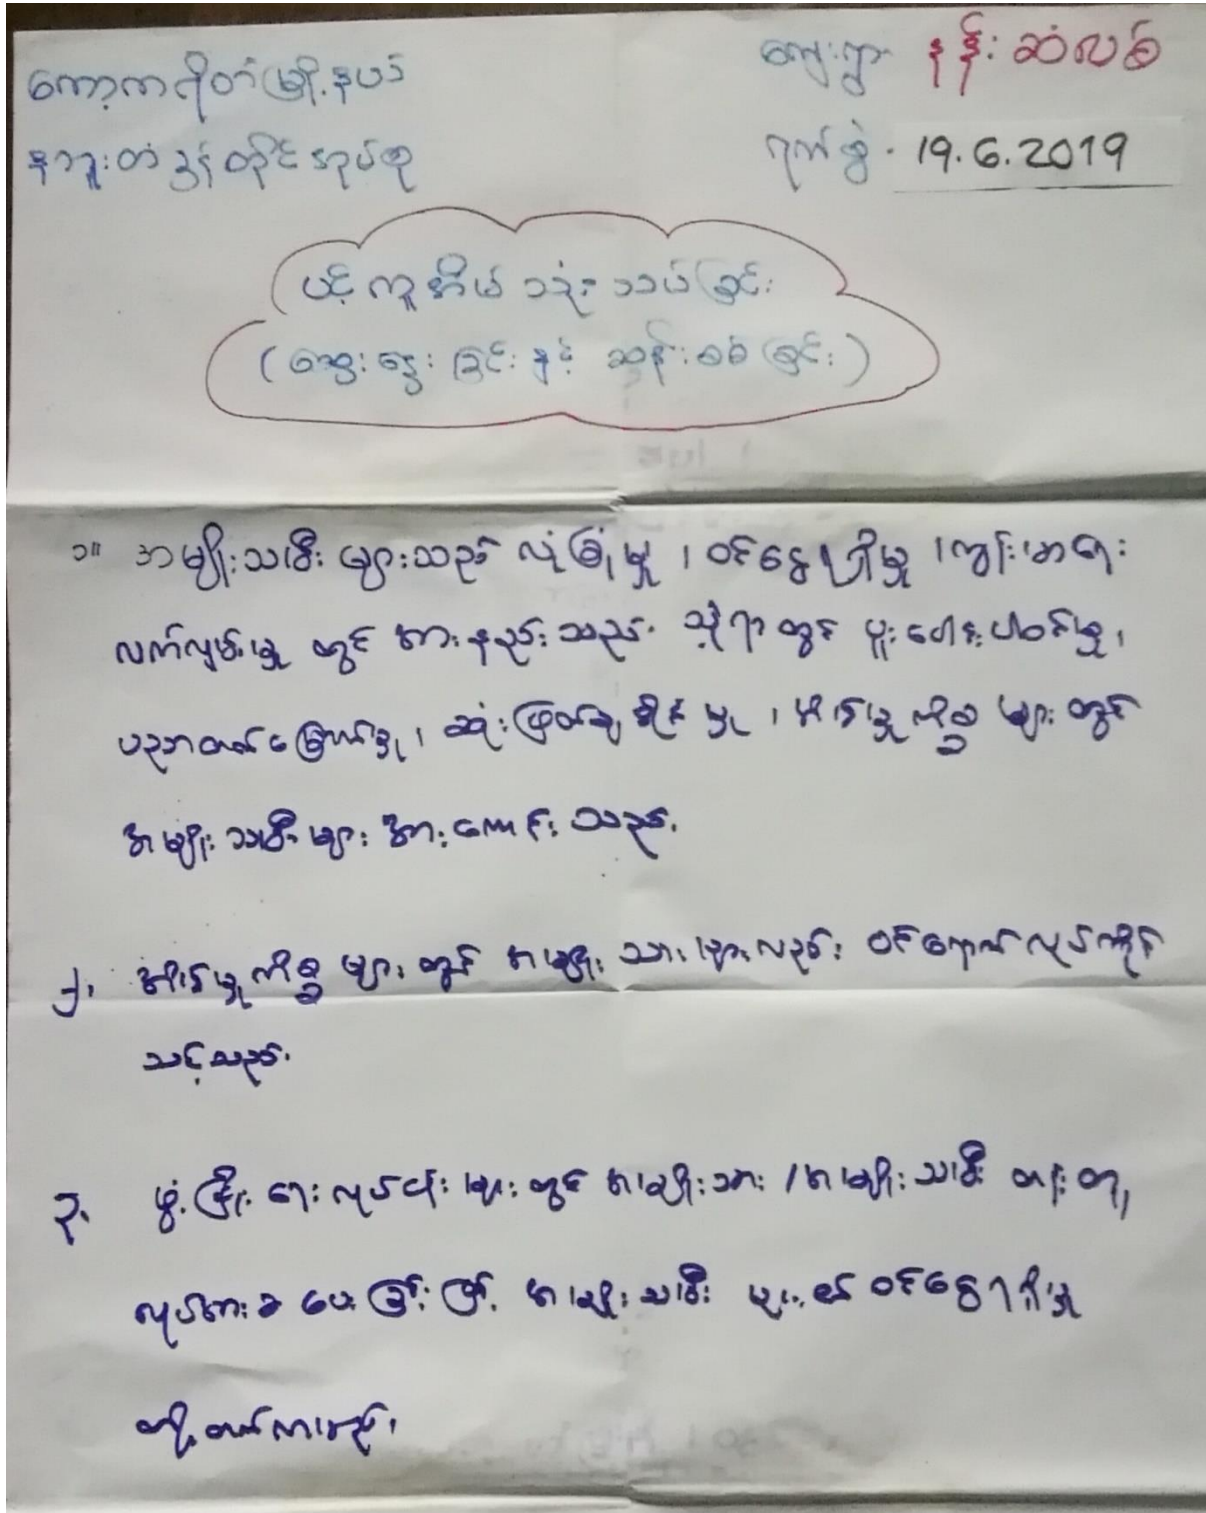 ကော့ကရိတ်မြို့နယ်
ကျေးရွာ နန်းဆံလစ်
နဘူးတံခွန်တိုင်အုပ်စု
ရက်စွဲ . 19.6.2019
ပင့်ကူအိမ်သုံးသပ်ခြင်း
(ဆွေးနွေးခြင်းနှင့် ဆန်းစစ်ခြင်း)
၁။ အမျိုးသမီးများသည် လုံခြုံမှု၊ ဝင်ငွေရရှိမှု၊ ကျန်းမာရေး
လက်လှမ်းမှီမှု တွင် အားနည်းသည်။ သို့ရာတွင် ပူးပေါင်းပါဝင်မှု၊
ပညာတတ်မြောက်မှု၊ ဆုံးဖြတ်ချနိုင်မှု၊ အိမ်မှုကိစ္စများတွင်
အမျိုးသမီးများ အားကောင်းသည်။
၂၊ အိမ်မှုကိစ္စများတွင် အမျိုးသားများလည်း ဝင်ရောက်လုပ်ကိုင်
သင့်သည်။
၃၊ ဖွံ့ဖြိုးရေးလုပ်ငန်းများတွင် အမျိုးသား/အမျိုးသမီး တန်းတူ
လုပ်အားခပေးခြင်းဖြင့် အမျိုးသမီး များ၏ ဝင်ငွေရရှိမှု
တိုးတက်လာမည်။